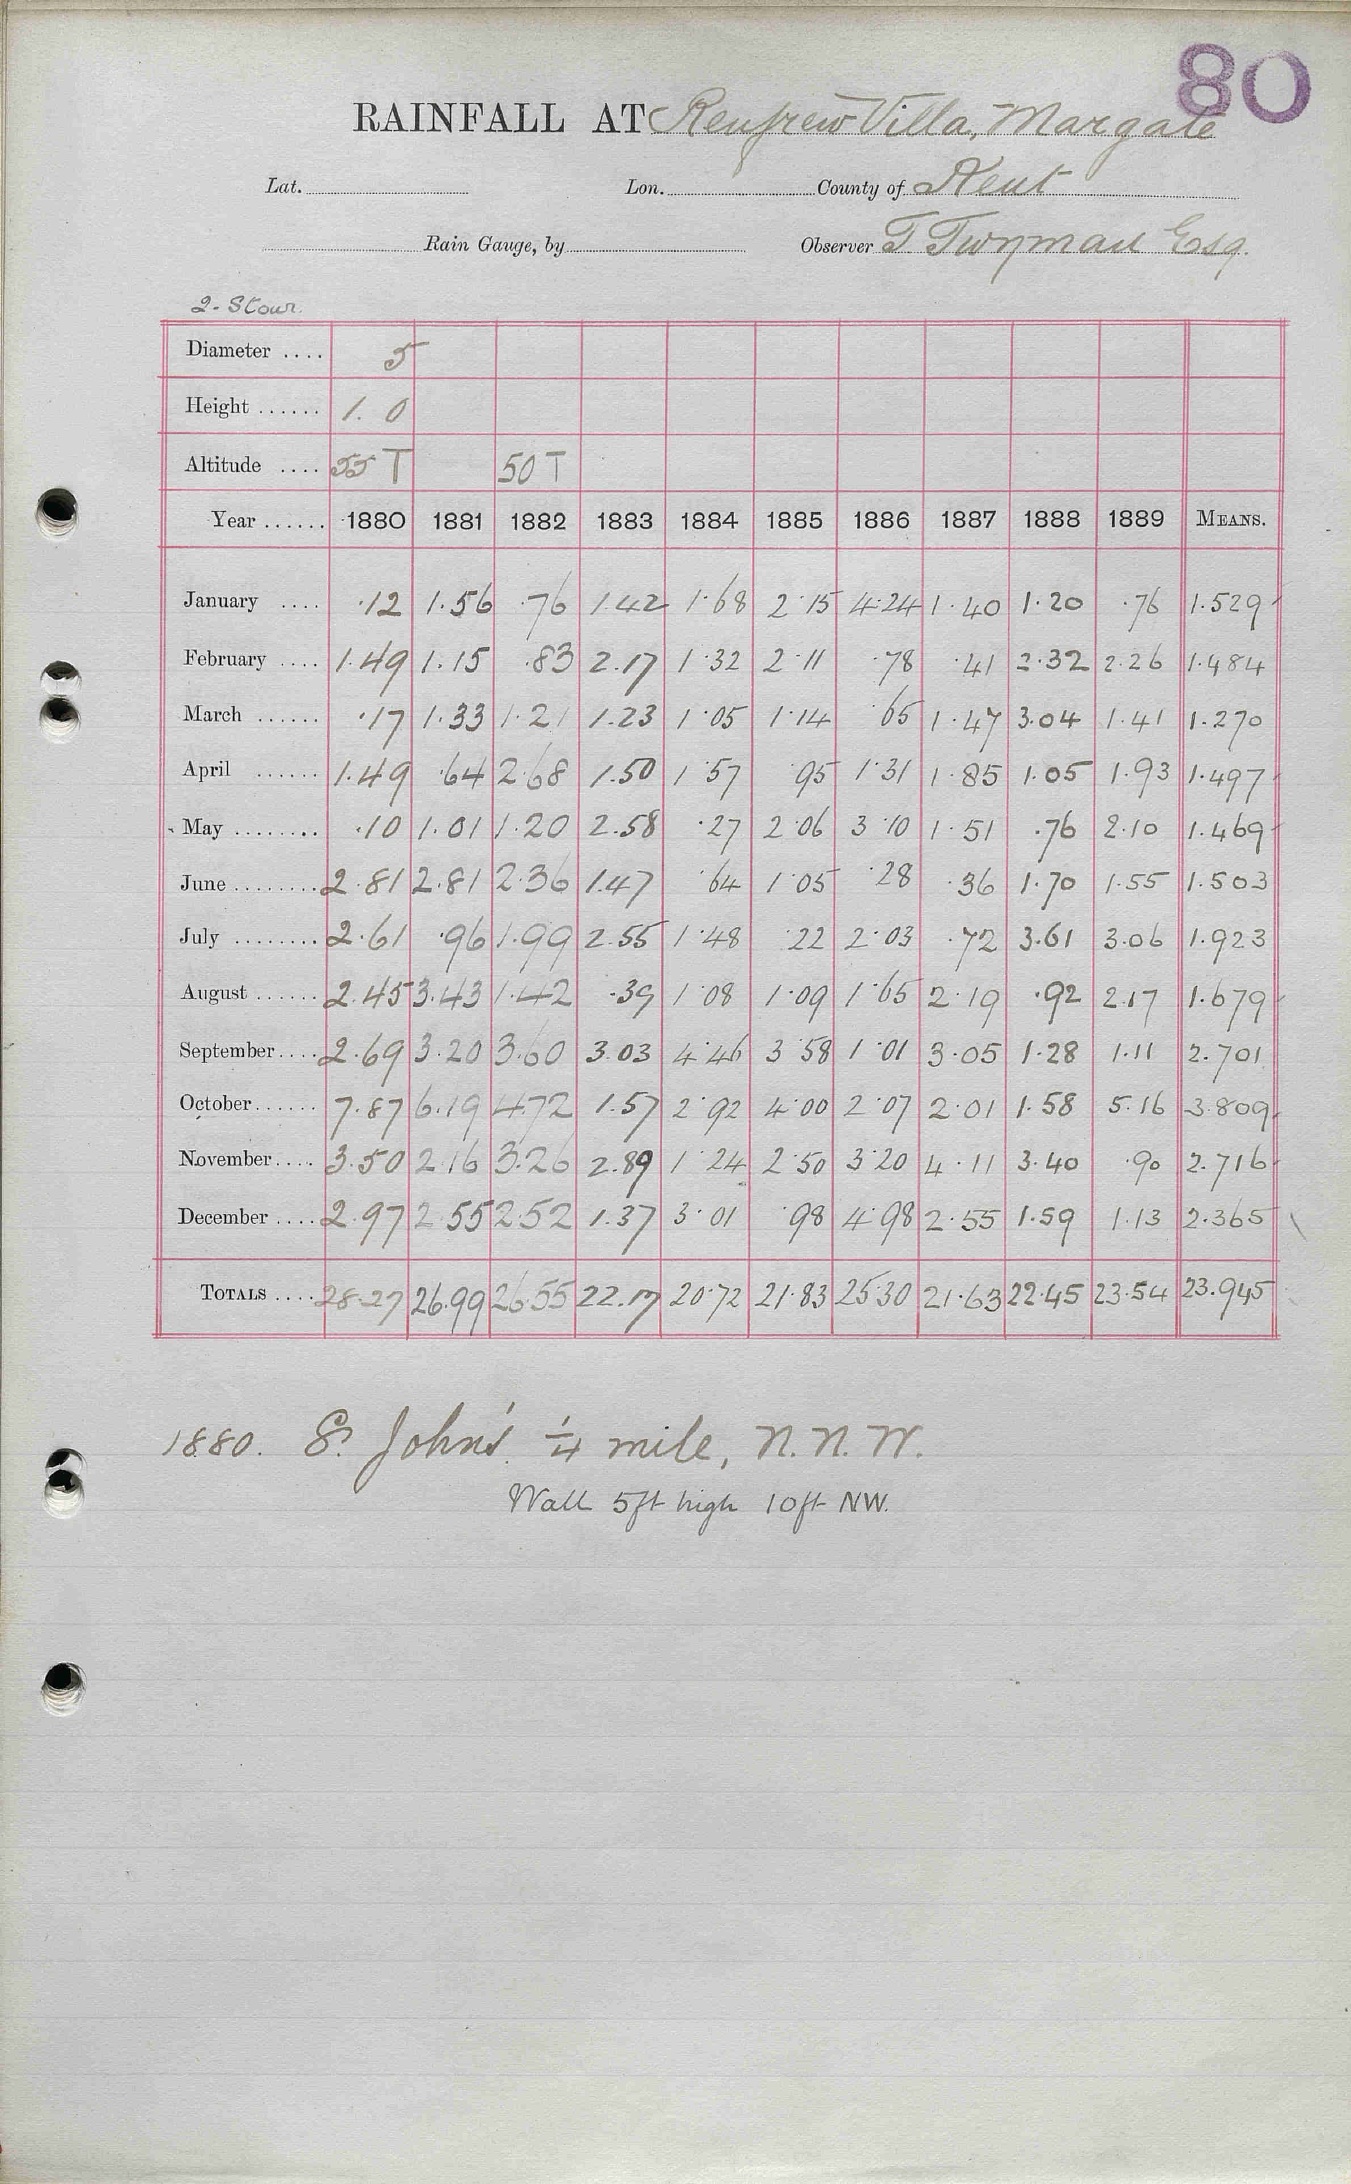 80
RAINFALL AT Renfrew Villa, Margate
Lat. Lon. County of Kent
Rain Gauge, by Observer T. Twyman Esq.
2 - Stour.
Diameter .... 5
Height ...... 1. 0
Altitude .... 55 T 50 T
Year ...... 1880 1881 1882 1883 1884 1885 1886 1887 1888 1889 MEANS.
January .... .12 1.56 .76 1.42 1.68 2.15 4.24 1.40 1.20 .76 1.529
February .... 1.49 1.15 .83 2.17 1.32 2.11 .78 .41 2.32 2.26 1.484
March ...... .17 1.33 1.21 1.23 1.05 1.14 .65 1.47 3.04 1.41 1.270
April ...... 1.49 .64 2.68 1.50 1.57 .95 1.31 1.85 1.05 1.93 1.497
May ........ .10 1.01 1.20 2.58 .27 2.06 3.10 1.51 .76 2.10 1.469
June ........ 2.81 2.81 2.36 1.47 .64 1.05 .28 .36 1.70 1.55 1.503
July ........ 2.61 .96 1.99 2.55 1.48 .22 2.03 .72 3.61 3.06 1.923
August ...... 2.45 3.43 1.42 .39 1.08 1.09 1.65 2.19 .92 2.17 1.679
September.... 2.69 3.20 3.60 3.03 4.46 3.58 1.01 3.05 1.28 1.11 2.701
October...... 7.87 6.19 4.72 1.57 2.92 4.00 2.07 2.01 1.58 5.16 3.809
November.... 3.50 2.16 3.26 2.89 1.24 2.50 3.20 4.11 3.40 .90 2.716
December .... 2.97 2.55 2.52 1.37 3.01 .98 4.98 2.55 1.59 1.13 2.365
TOTALS .... 28.27 26.99 26.55 22.17 20.72 21.83 25.30 21.63 22.45 23.54 23.945
1880. St. John's. ¼ mile, N.N.W.
Wall 5ft high 10ft NW.